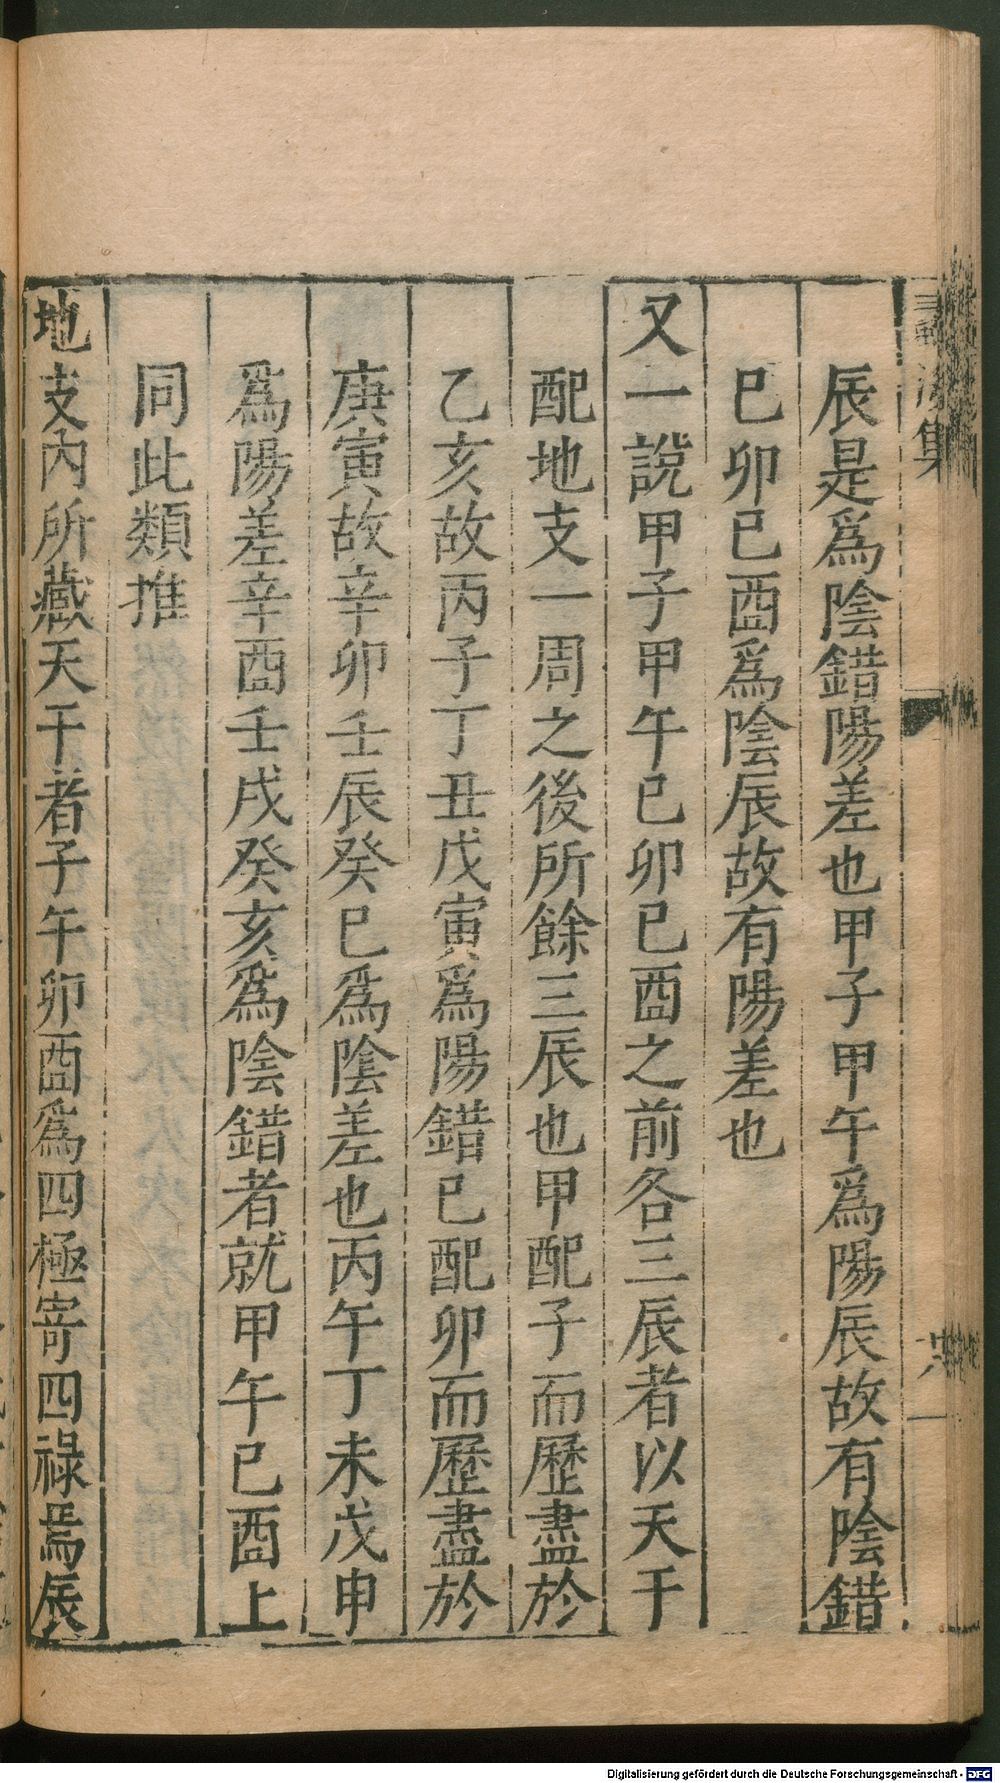 辰是爲陰錯陽差也甲子甲午爲陽辰故有陰錯
巳卯巳酉爲陰辰故有陽差也
又一說甲子甲午巳卯巳酉之前各三辰者以天干
配地支一周之後所餘三辰也甲配子而歷盡於
乙亥故丙子丁丑戊寅爲陽錯巳配卯而歷盡於
庚寅故辛卯壬辰癸巳爲陰差也丙午丁未戊申
爲陽差辛酉壬戌癸亥爲陰錯者就甲午巳酉上
同此類推
地支內所藏天干者子午卯酉爲四極寄四祿焉辰
Digitalisierung gefördert durch die Deutsche Forschungsgemeinschaft - DFG